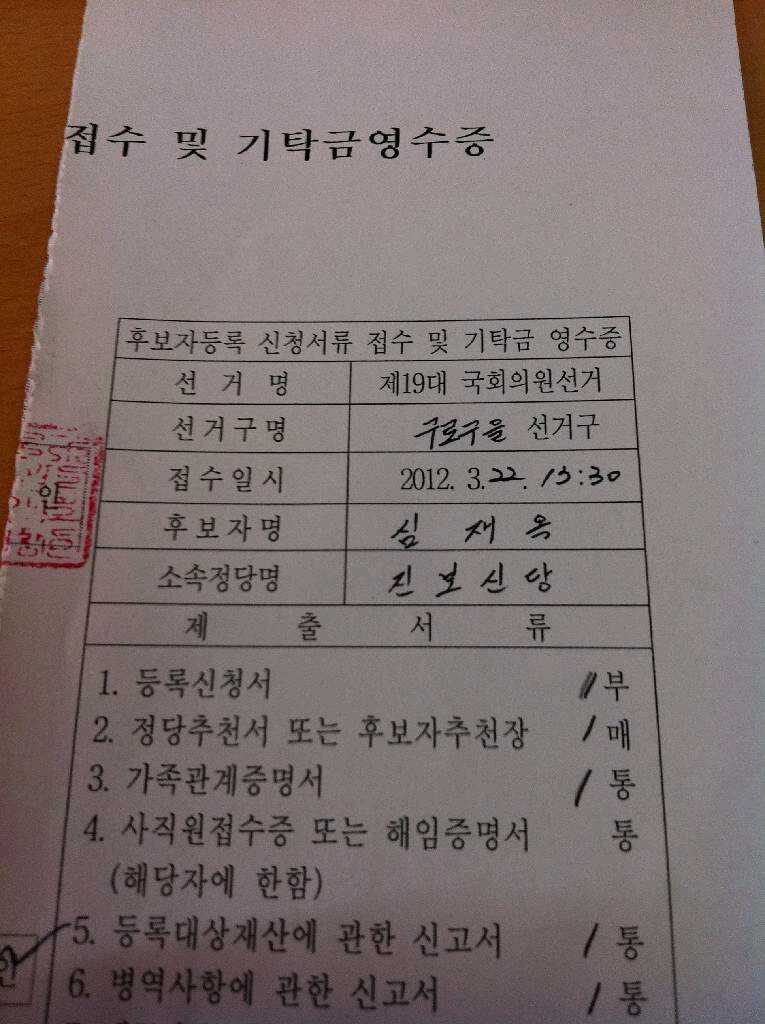 접수 및 기탁금영수증
후보자등록 신청서류 접수 및 기탁금 영수증
선 거 명 제19대 국회의원선거
선거구명 구로구을 선거구
접수일시 2012. 3. 22. 13:30
후보자명 심 재 옥
소속정당명 진보신당
제 출 서 류
1. 등록신청서 1부
2. 정당추천서 또는 후보자추천장 1매
3. 가족관계증명서 1통
4. 사직원접수증 또는 해임증명서 통
(해당자에 한함)
5. 등록대상재산에 관한 신고서 1통
6. 병역사항에 관한 신고서 1통
인